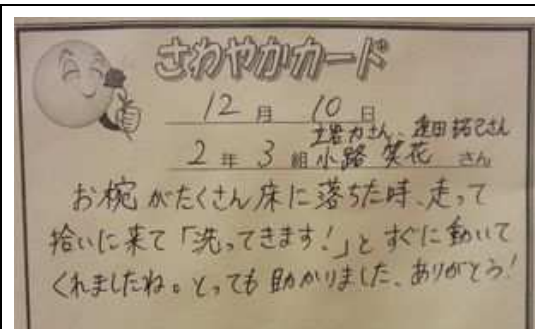 さわやかカード
12月 10日
土居力さん、蓮田拓己さん
2年 3組 小路 笑花 さん
お椀がたくさん床に落ちた時、走って
拾いに来て「洗ってきます!」とすぐに動いて
くれましたね。とっても助かりました、ありがとう!